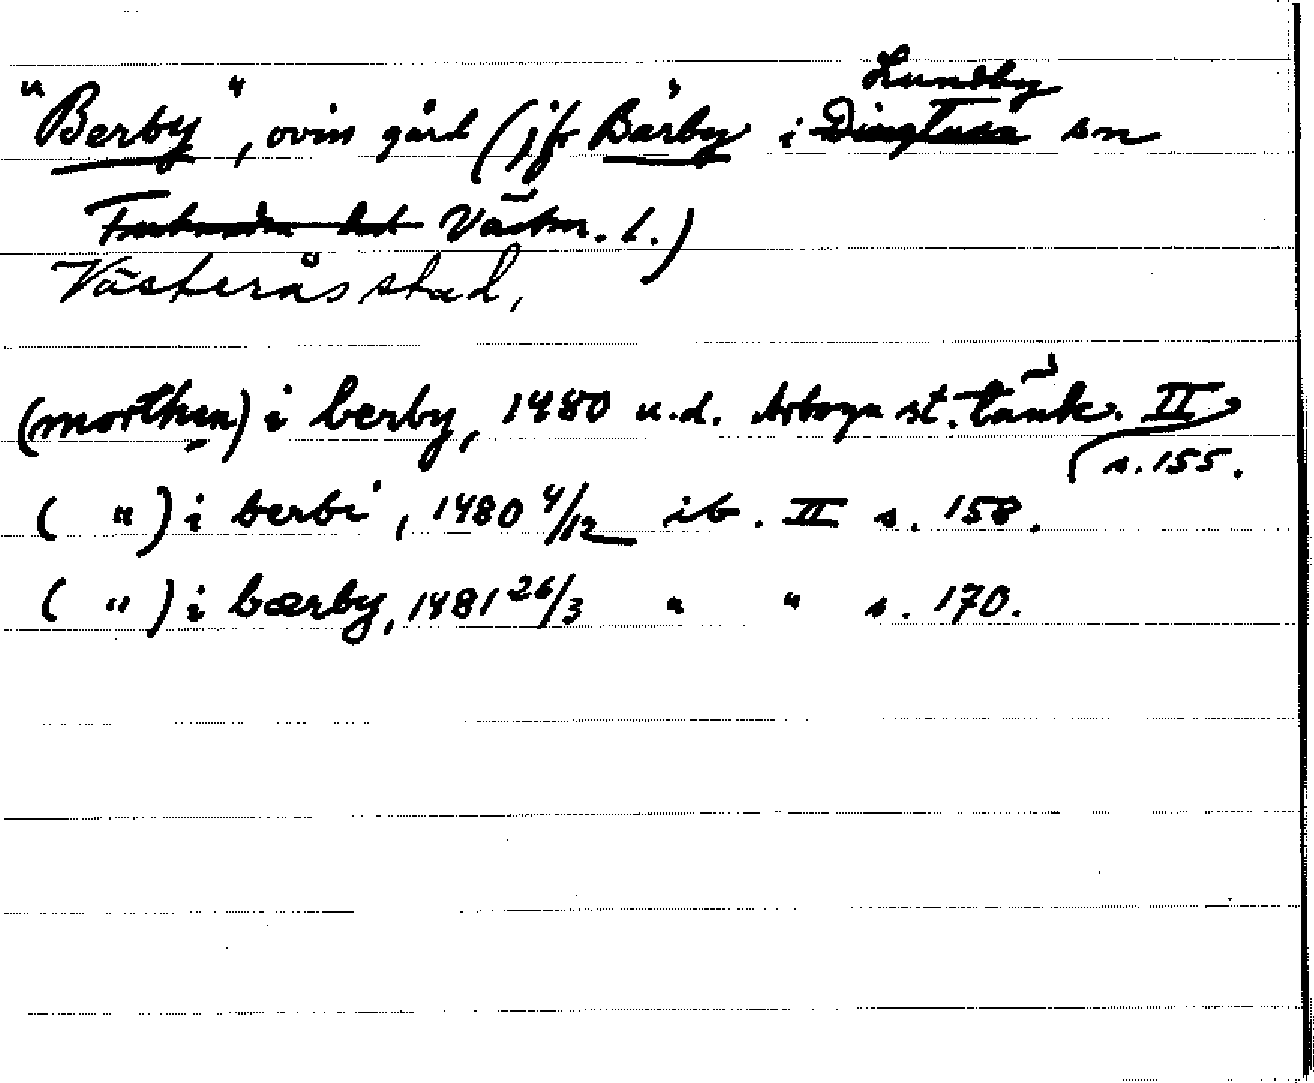 Lundby
"Berby", oviss gård (jfr Bärby i Dingtuna sn
Tuhundra hd Västm. l.)
Västerås stad,
(morthen) i berby, 1480 u.d. Arboga st. tänk. II
s. 155.
( " ) i berbi, 1480 4/12 ib. II s. 158.
( " ) i bærby, 1481 26/3 " " s. 170.